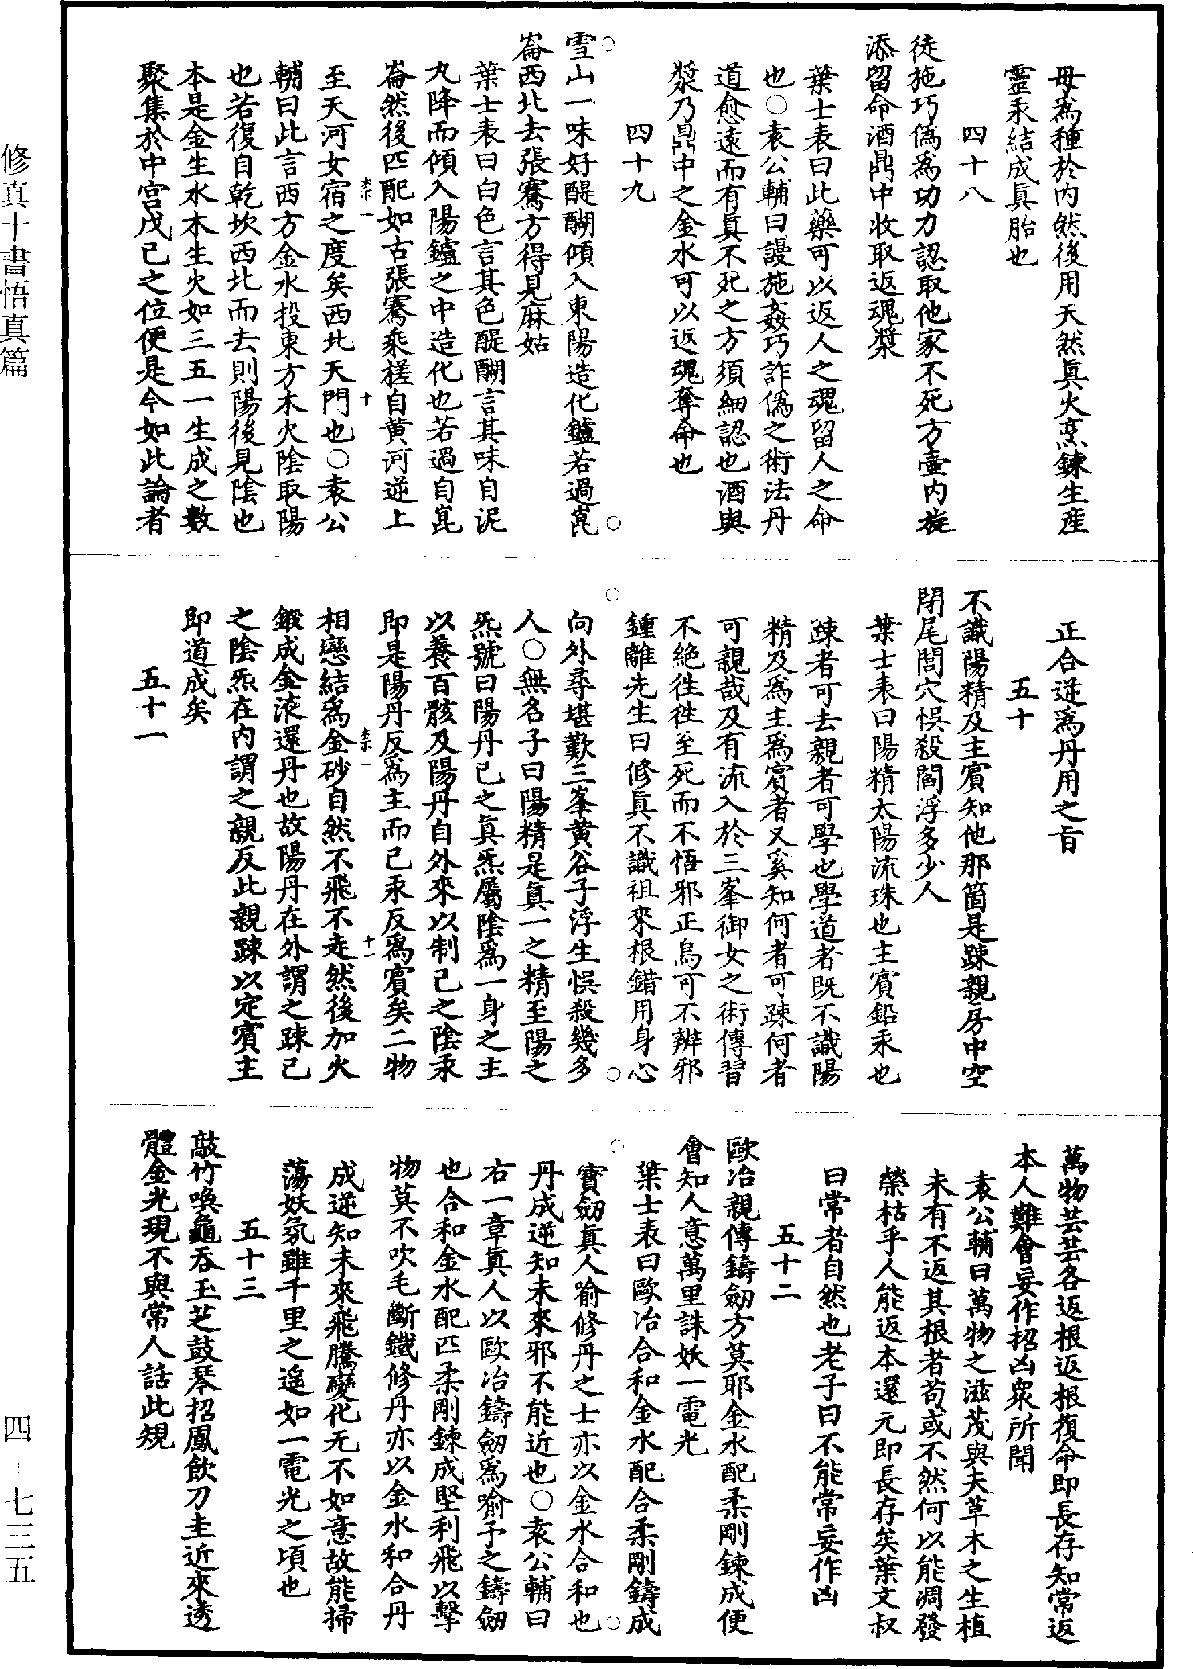 母爲種於内然後用天然眞火烹鍊生産
靈汞結成眞胎也
四十八
徒施巧僞爲功力認取他家不死方壷内旋
添留命酒鼎中收取返魂漿
葉士表曰此藥可以返人之魂留人之命
也○袁公輔曰謾施姦巧詐僞之術法丹
道愈遠而有眞不死之方須細認也酒與
漿乃鼎中之金水可以返魂奪命也
四十九
雪山一味好醍醐傾入東陽造化鑪若過崑
崙西北去張騫方得見麻姑
葉士表曰白色言其色醍醐言其味自泥
丸降而傾入陽鑪之中造化也若過自崑
崙然後匹配如古張騫乘槎自黄河逆上
至天河女宿之度矣西北天門也○袁公
輔曰此言西方金水投東方木火陰取陽
也若復自乾坎西北而去則陽後見陰也
本是金生水木生火如三五一生成之數
聚集於中宫戊己之位便是今如此論者
正合逆爲丹用之旨
五十
不識陽精及主賓知他那箇是踈親房中空
閉尾閭穴悞殺閻浮多少人
葉士表曰陽精太陽流珠也主賓鉛汞也
踈者可去親者可學也學道者既不識陽
精及爲主爲賓者又奚知何者可踈何者
可親哉及有流入於三峯御女之術傳習
不絶往往至死而不悟邪正烏可不辨邪
鍾離先生曰修眞不識祖來根錯用身心
向外尋堪歎三峯黄谷子浮生悞殺幾多
人○無名子曰陽精是眞一之精至陽之
炁號曰陽丹己之眞炁屬陰爲一身之主
以養百骸及陽丹自外來以制己之陰汞
即是陽丹反爲主而己汞反爲賓矣二物
相戀結爲金砂自然不飛不走然後加火
鍛成金液還丹也故陽丹在外謂之踈己
之陰炁在内謂之親反此親踈以定賓主
即道成矣
五十一
萬物芸芸各返根返根復命即長存知常返
本人難會妄作招凶衆所聞
袁公輔曰萬物之滋茂與夫草木之生植
未有不返其根者苟或不然何以能凋發
榮枯乎人能返本還元即長存矣葉文叔
曰常者自然也老子曰不能常妄作凶
五十二
歐冶親傳鑄劒方莫耶金水配柔剛鍊成便
會知人意萬里誅妖一電光
葉士表曰歐冶合和金水配合柔剛鑄成
寳劒真人喻修丹之士亦以金水合和也
丹成逆知未來邪不能近也○袁公輔曰
右一章真人以歐冶鑄劒爲喻子之鑄劒
也合和金水配匹柔剛鍊成堅利飛以擊
物莫不吹毛斷鐵修丹亦以金水和合丹
成逆知未來飛騰變化无不如意故能掃
蕩妖氛雖千里之遥如一電光之頃也
五十三
敲竹喚龜吞玉芝鼓琴招鳳飲刀圭近來透
體金光現不與常人話此規
修真十書悟真篇
四-七三五